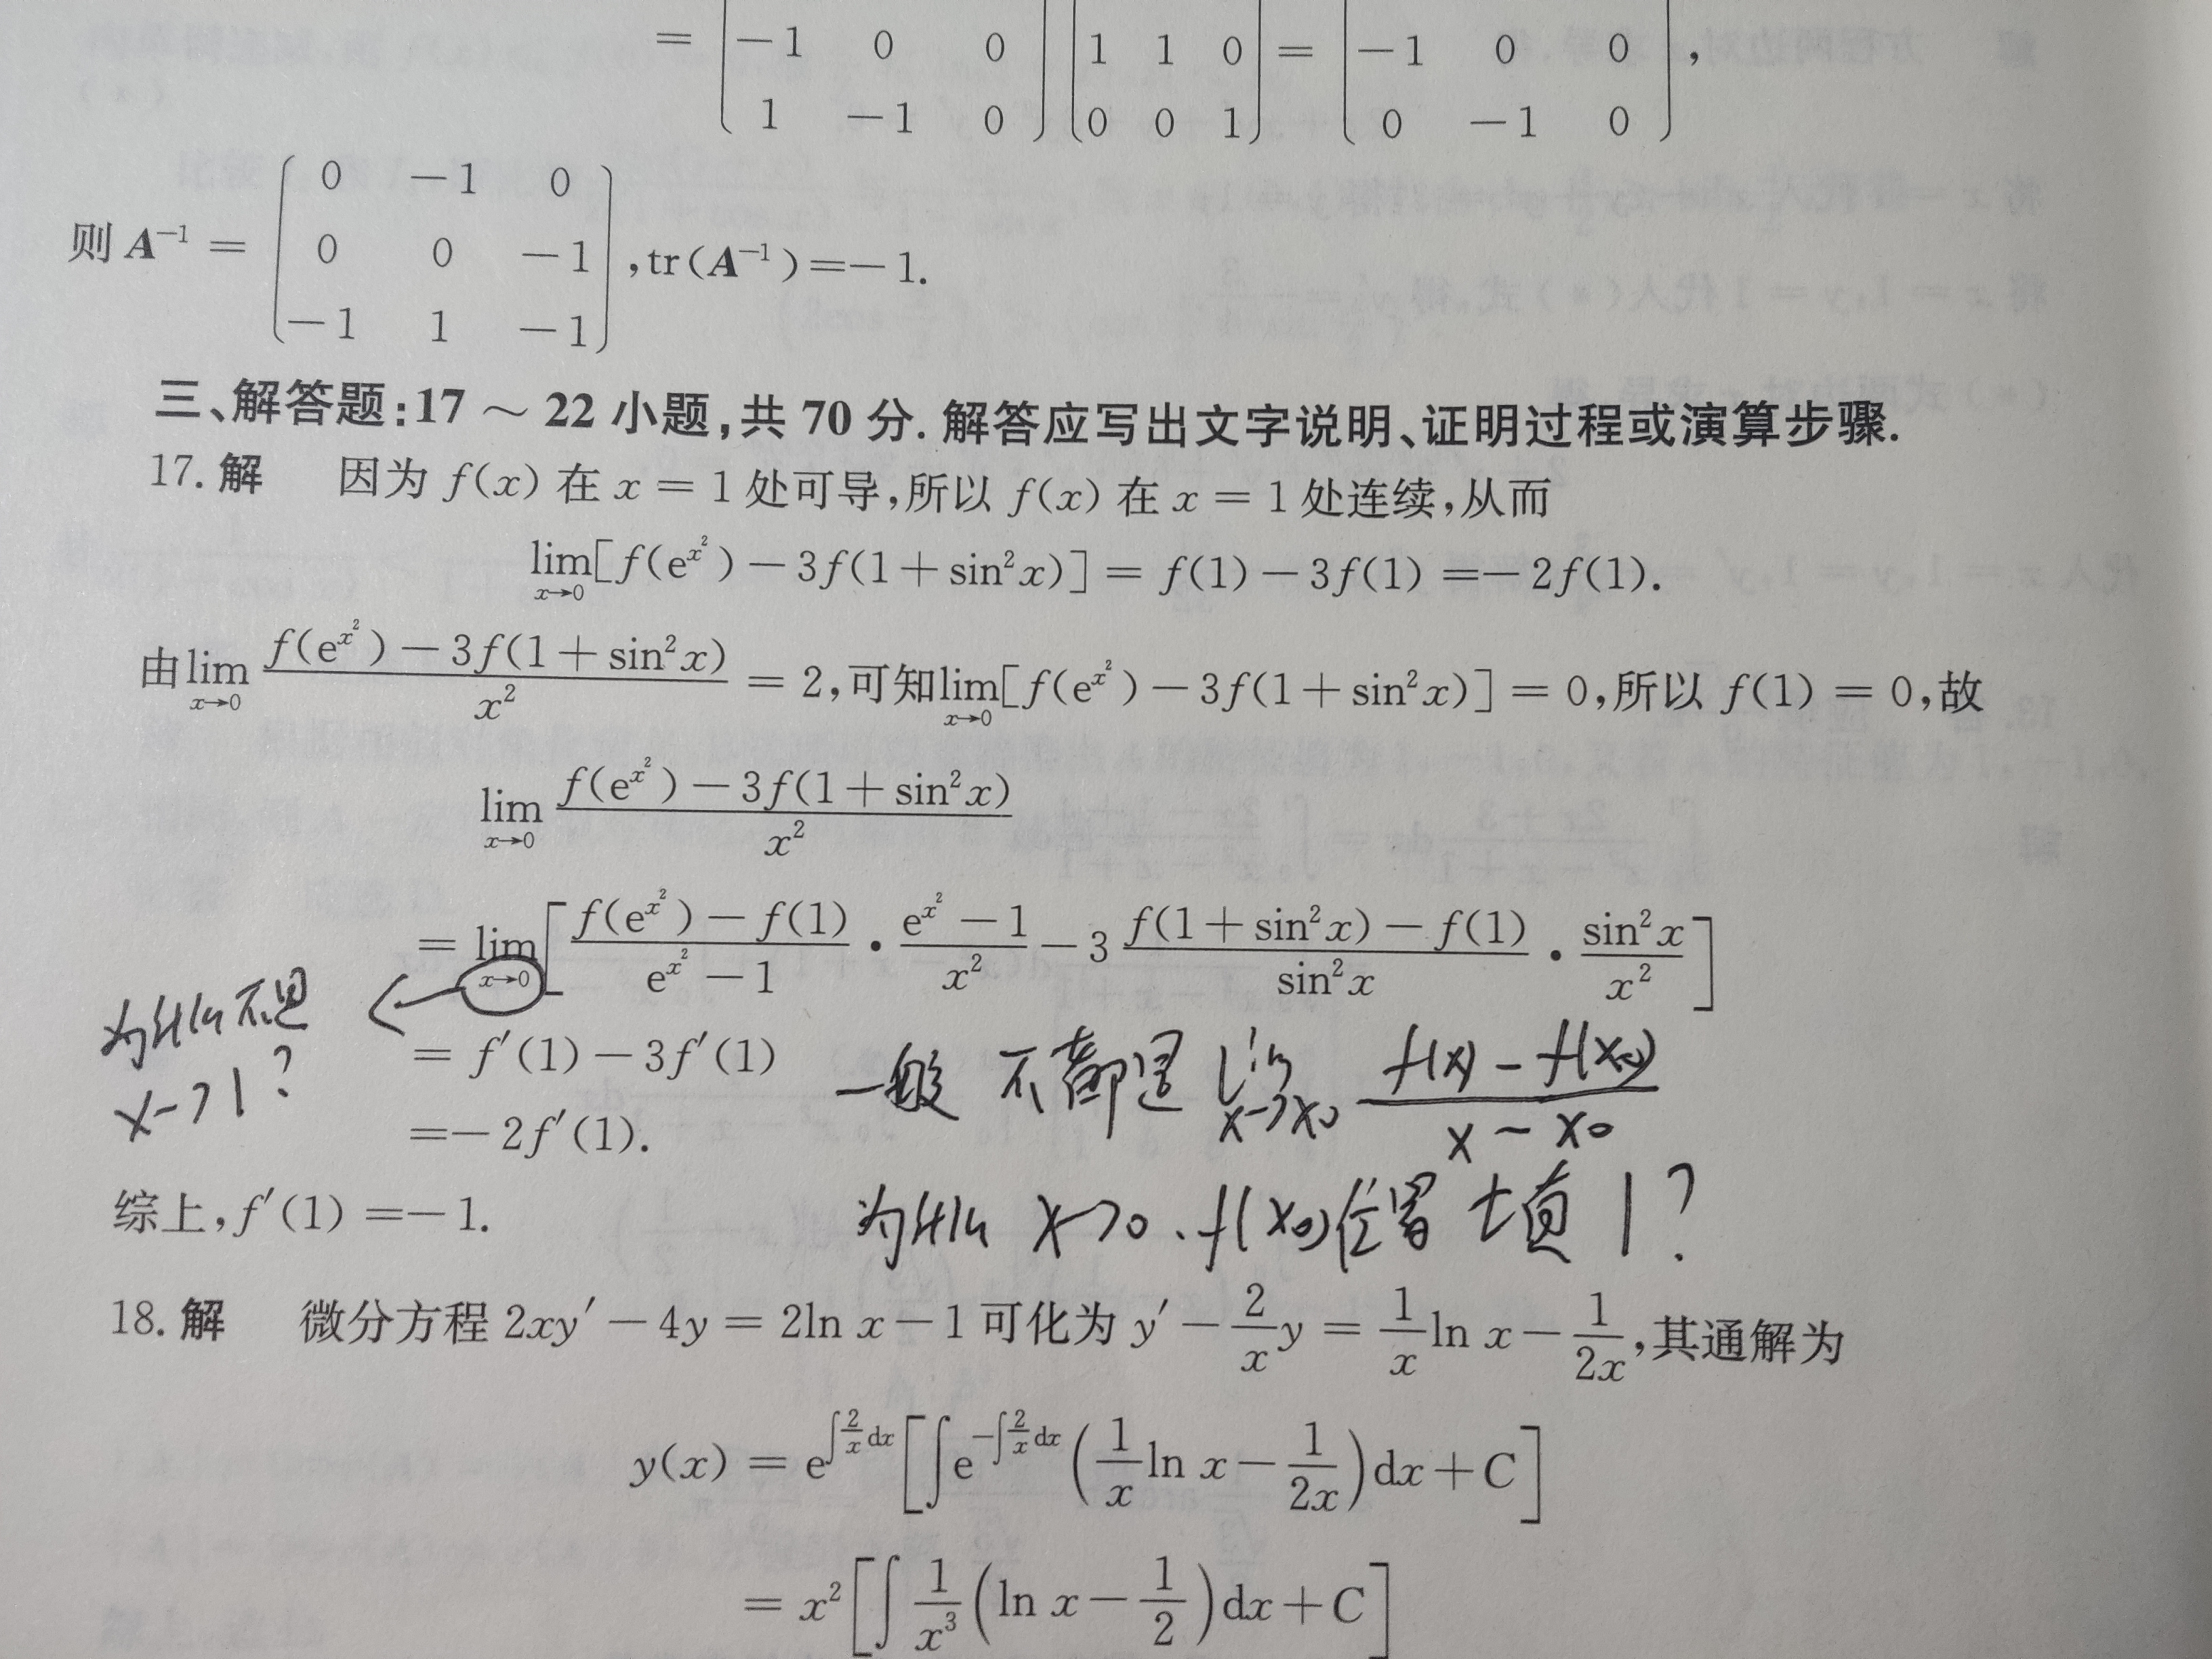 = [ −1 0 0 ] [ 1 1 0 ] = [ −1 0 0 ] ,
1 −1 0 0 0 1 0 −1 0
0 −1 0
则 A⁻¹ = 0 0 −1 , tr(A⁻¹)=−1.
−1 1 −1
三、解答题:17 ～ 22 小题,共 70 分. 解答应写出文字说明、证明过程或演算步骤.
17. 解 因为 f(x) 在 x = 1 处可导,所以 f(x) 在 x = 1 处连续,从而
lim_{x→0}[f(e^{x²}) − 3f(1+sin²x)] = f(1) − 3f(1) =−2f(1).
由 lim_{x→0} (f(e^{x²}) − 3f(1+sin²x))/x² = 2,可知 lim_{x→0}[f(e^{x²}) − 3f(1+sin²x)] = 0,所以 f(1) = 0,故
lim_{x→0} (f(e^{x²}) − 3f(1+sin²x))/x²
= lim_{x→0}[ (f(e^{x²}) − f(1))/(e^{x²} − 1) · (e^{x²} − 1)/x² − 3 (f(1+sin²x) − f(1))/(sin²x) · (sin²x)/x² ]
为什么不是
x->1?
= f′(1) − 3f′(1)
=−2f′(1).
一般不都是 lim_{x->x₀} (f(x) − f(x₀))/(x − x₀)
综上,f′(1) =−1.
为什么 x->0 . f(x₀)位置填1?
18. 解 微分方程 2xy′ − 4y = 2ln x − 1 可化为 y′ − (2/x)y = (1/x)ln x − 1/(2x),其通解为
y(x) = e^{∫(2/x)dx}[∫e^{−∫(2/x)dx}((1/x)ln x − 1/(2x))dx + C]
= x²[∫(1/x³)(ln x − 1/2)dx + C]